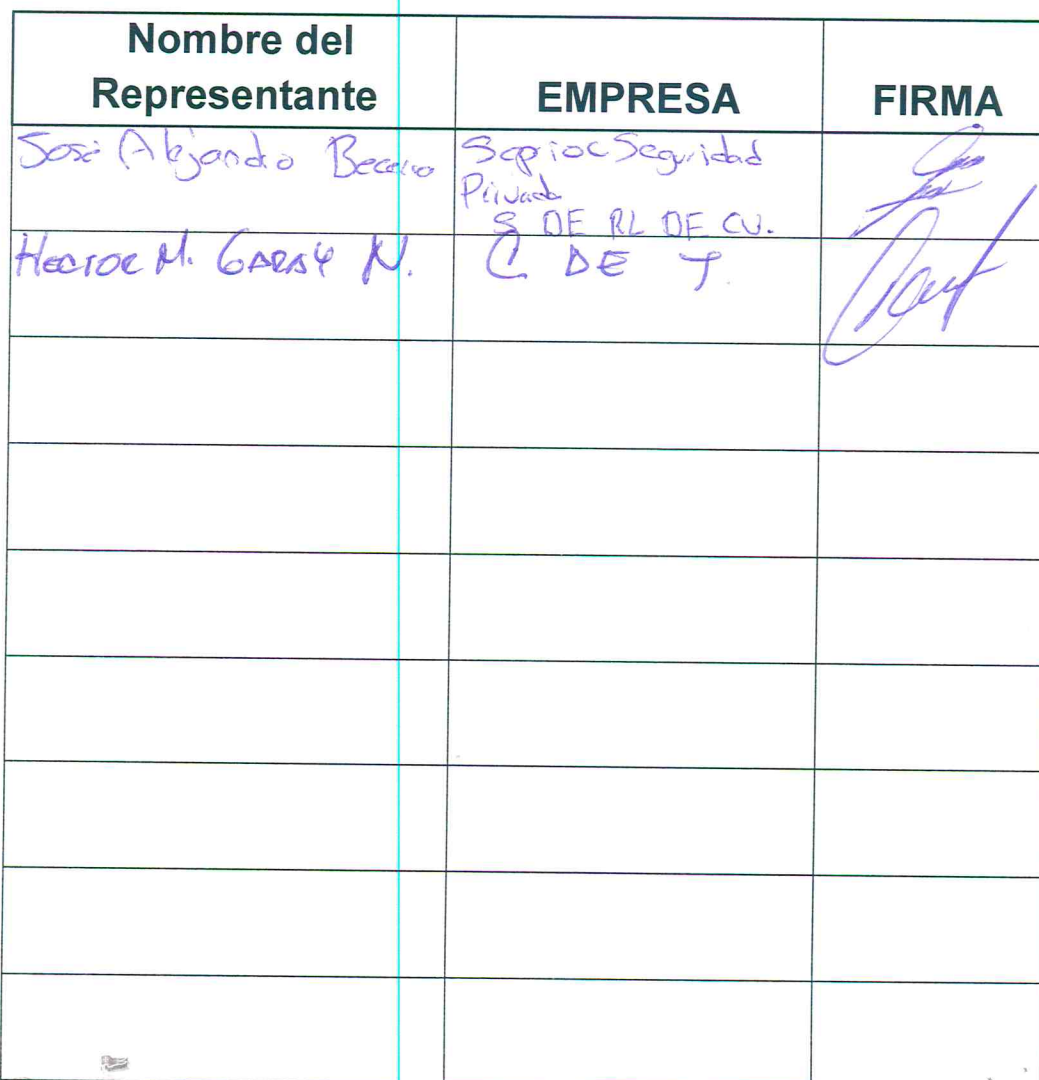 Nombre del
Representante
EMPRESA
FIRMA
José Alejandro Becerro
Sepioc Seguridad
Privada
S DE RL DE CV.
HECTOR M. GARAY N.
C DE T